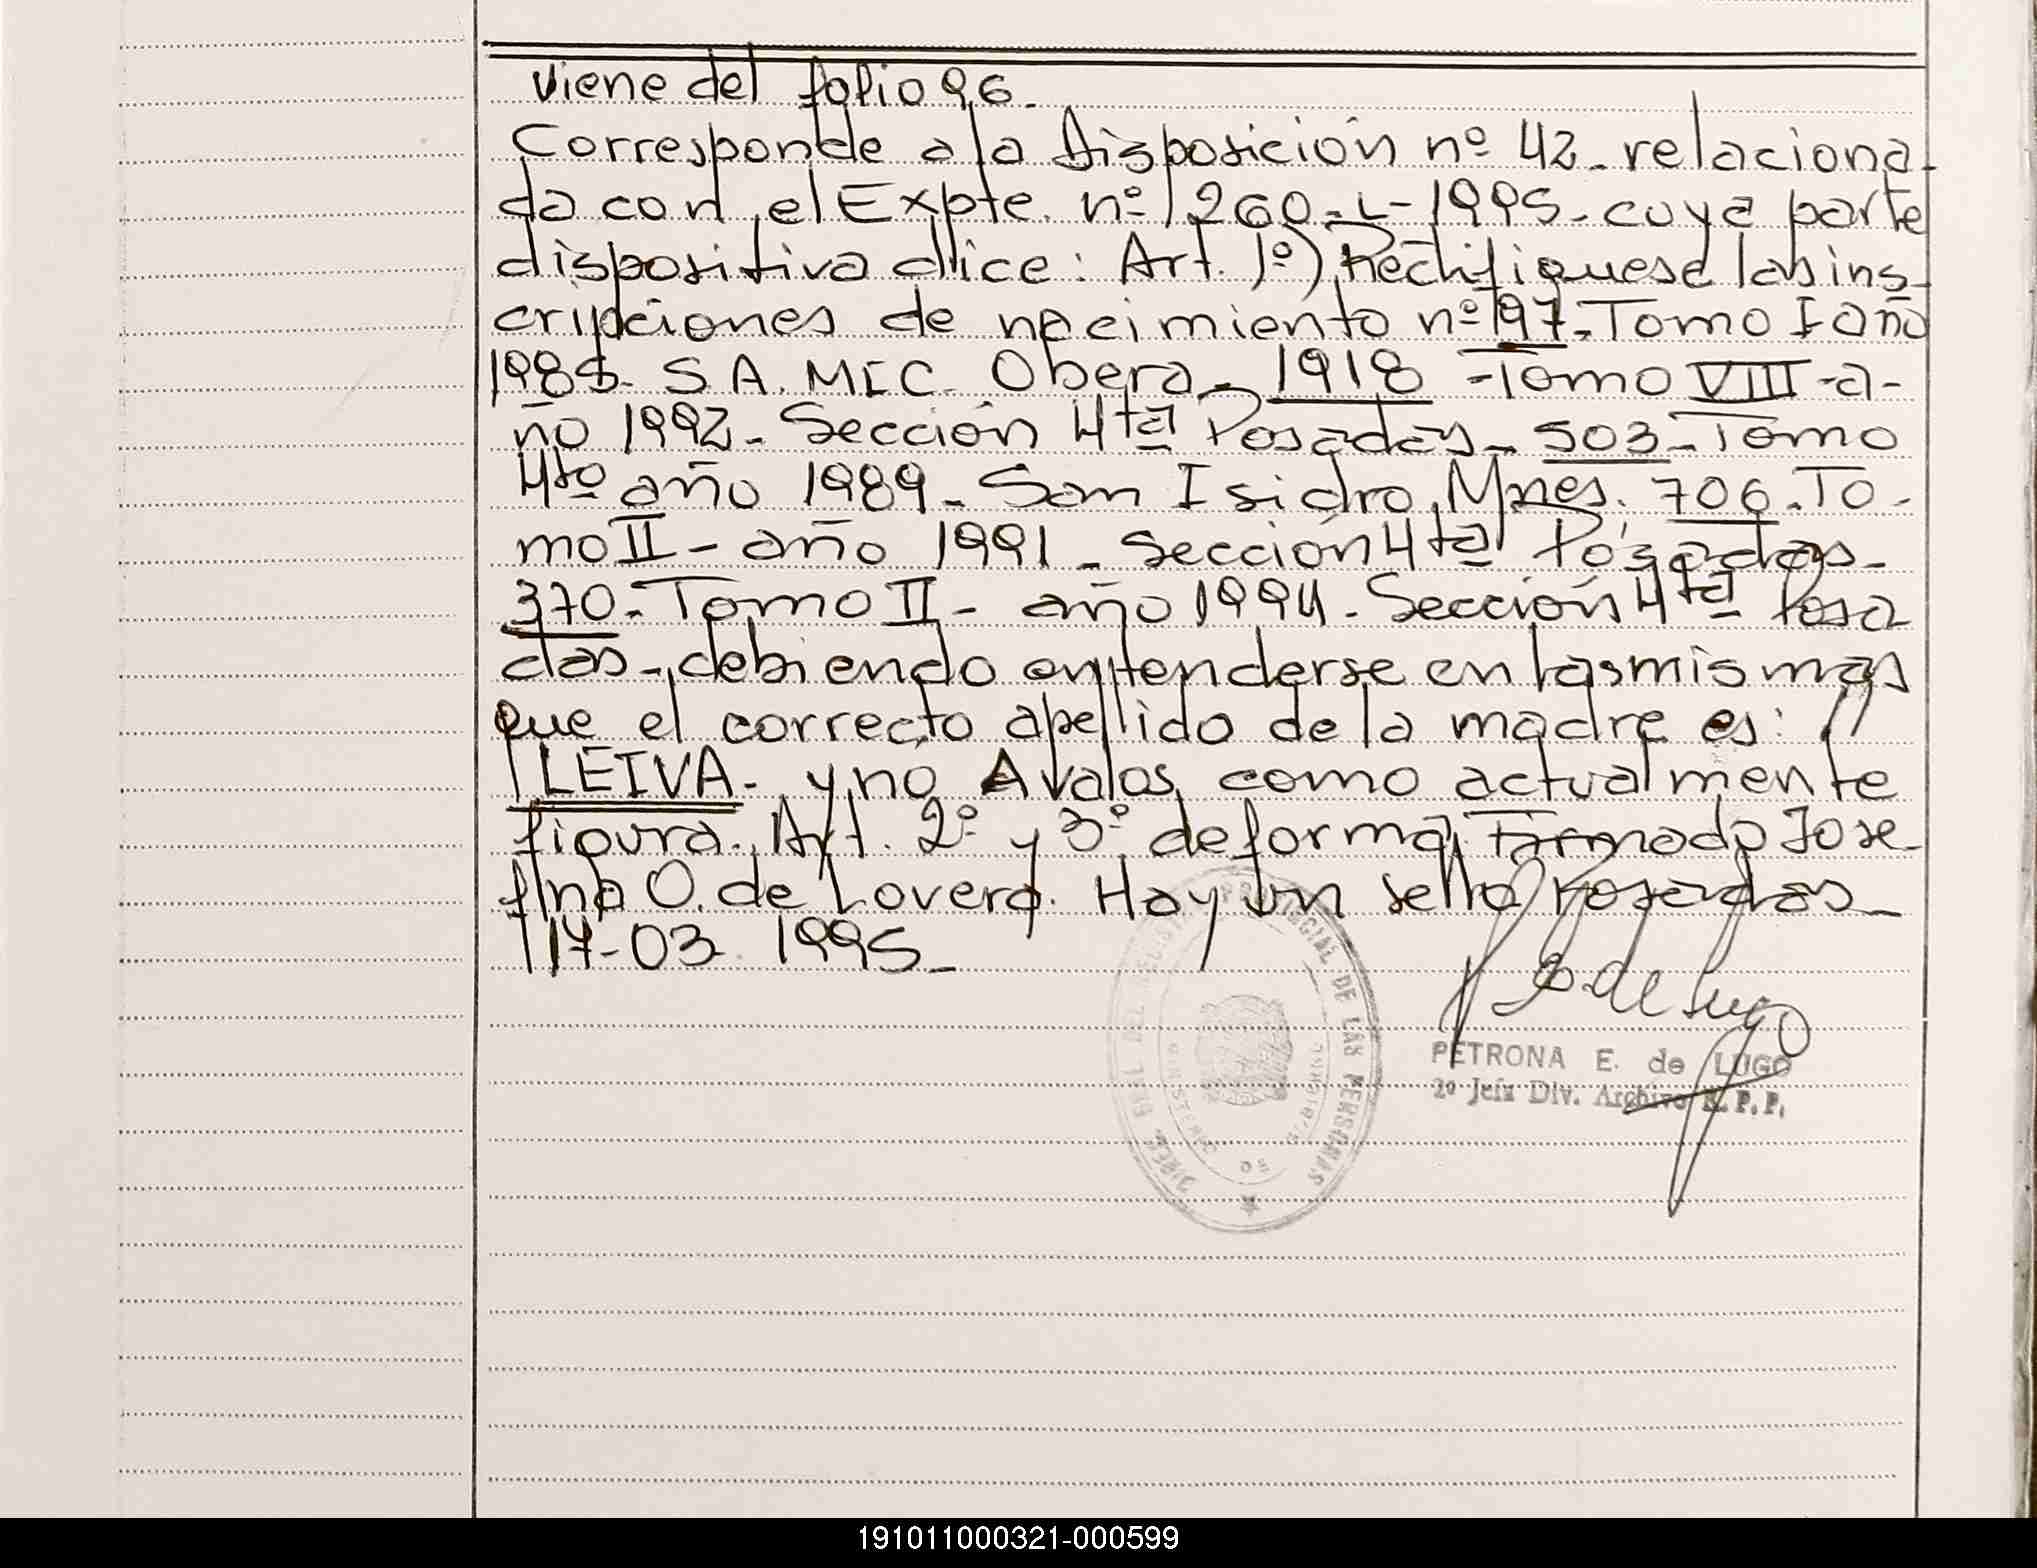 viene del folio 96.
Corresponde a la Disposición nº 42. relaciona-
da con el Expte. nº 1260-L-1995. cuya parte
dispositiva dice: Art. 1º) Rectifiquese las ins-
cripciones de nacimiento nº 197. Tomo I año
S.A.M.I.C. Obera. 1918 - Tomo VIII - a-
ño 1992. Sección 4ta Posadas - 503 - Tomo
4to año 1989. San Isidro, Mnes. 706. To-
mo II - año 1991 - Sección 4ta Posadas -
370. Tomo II - año 1994. Sección 4ta Posa
das -, debiendo entenderse en las mismas
que el correcto apellido de la madre es: //
LEIVA. y no Avalos, como actualmente
figura. Art. 2º y 3º, de forma, Firmado Jose-
fina O. de Lovera. Hay un sello Posadas -
17-03 1995 -
E. de Lugo
PETRONA E. de LUGO
2º Jefa Div. Archivo R. P. P.
PROVINCIAL DE LAS PERSONAS
191011000321-000599